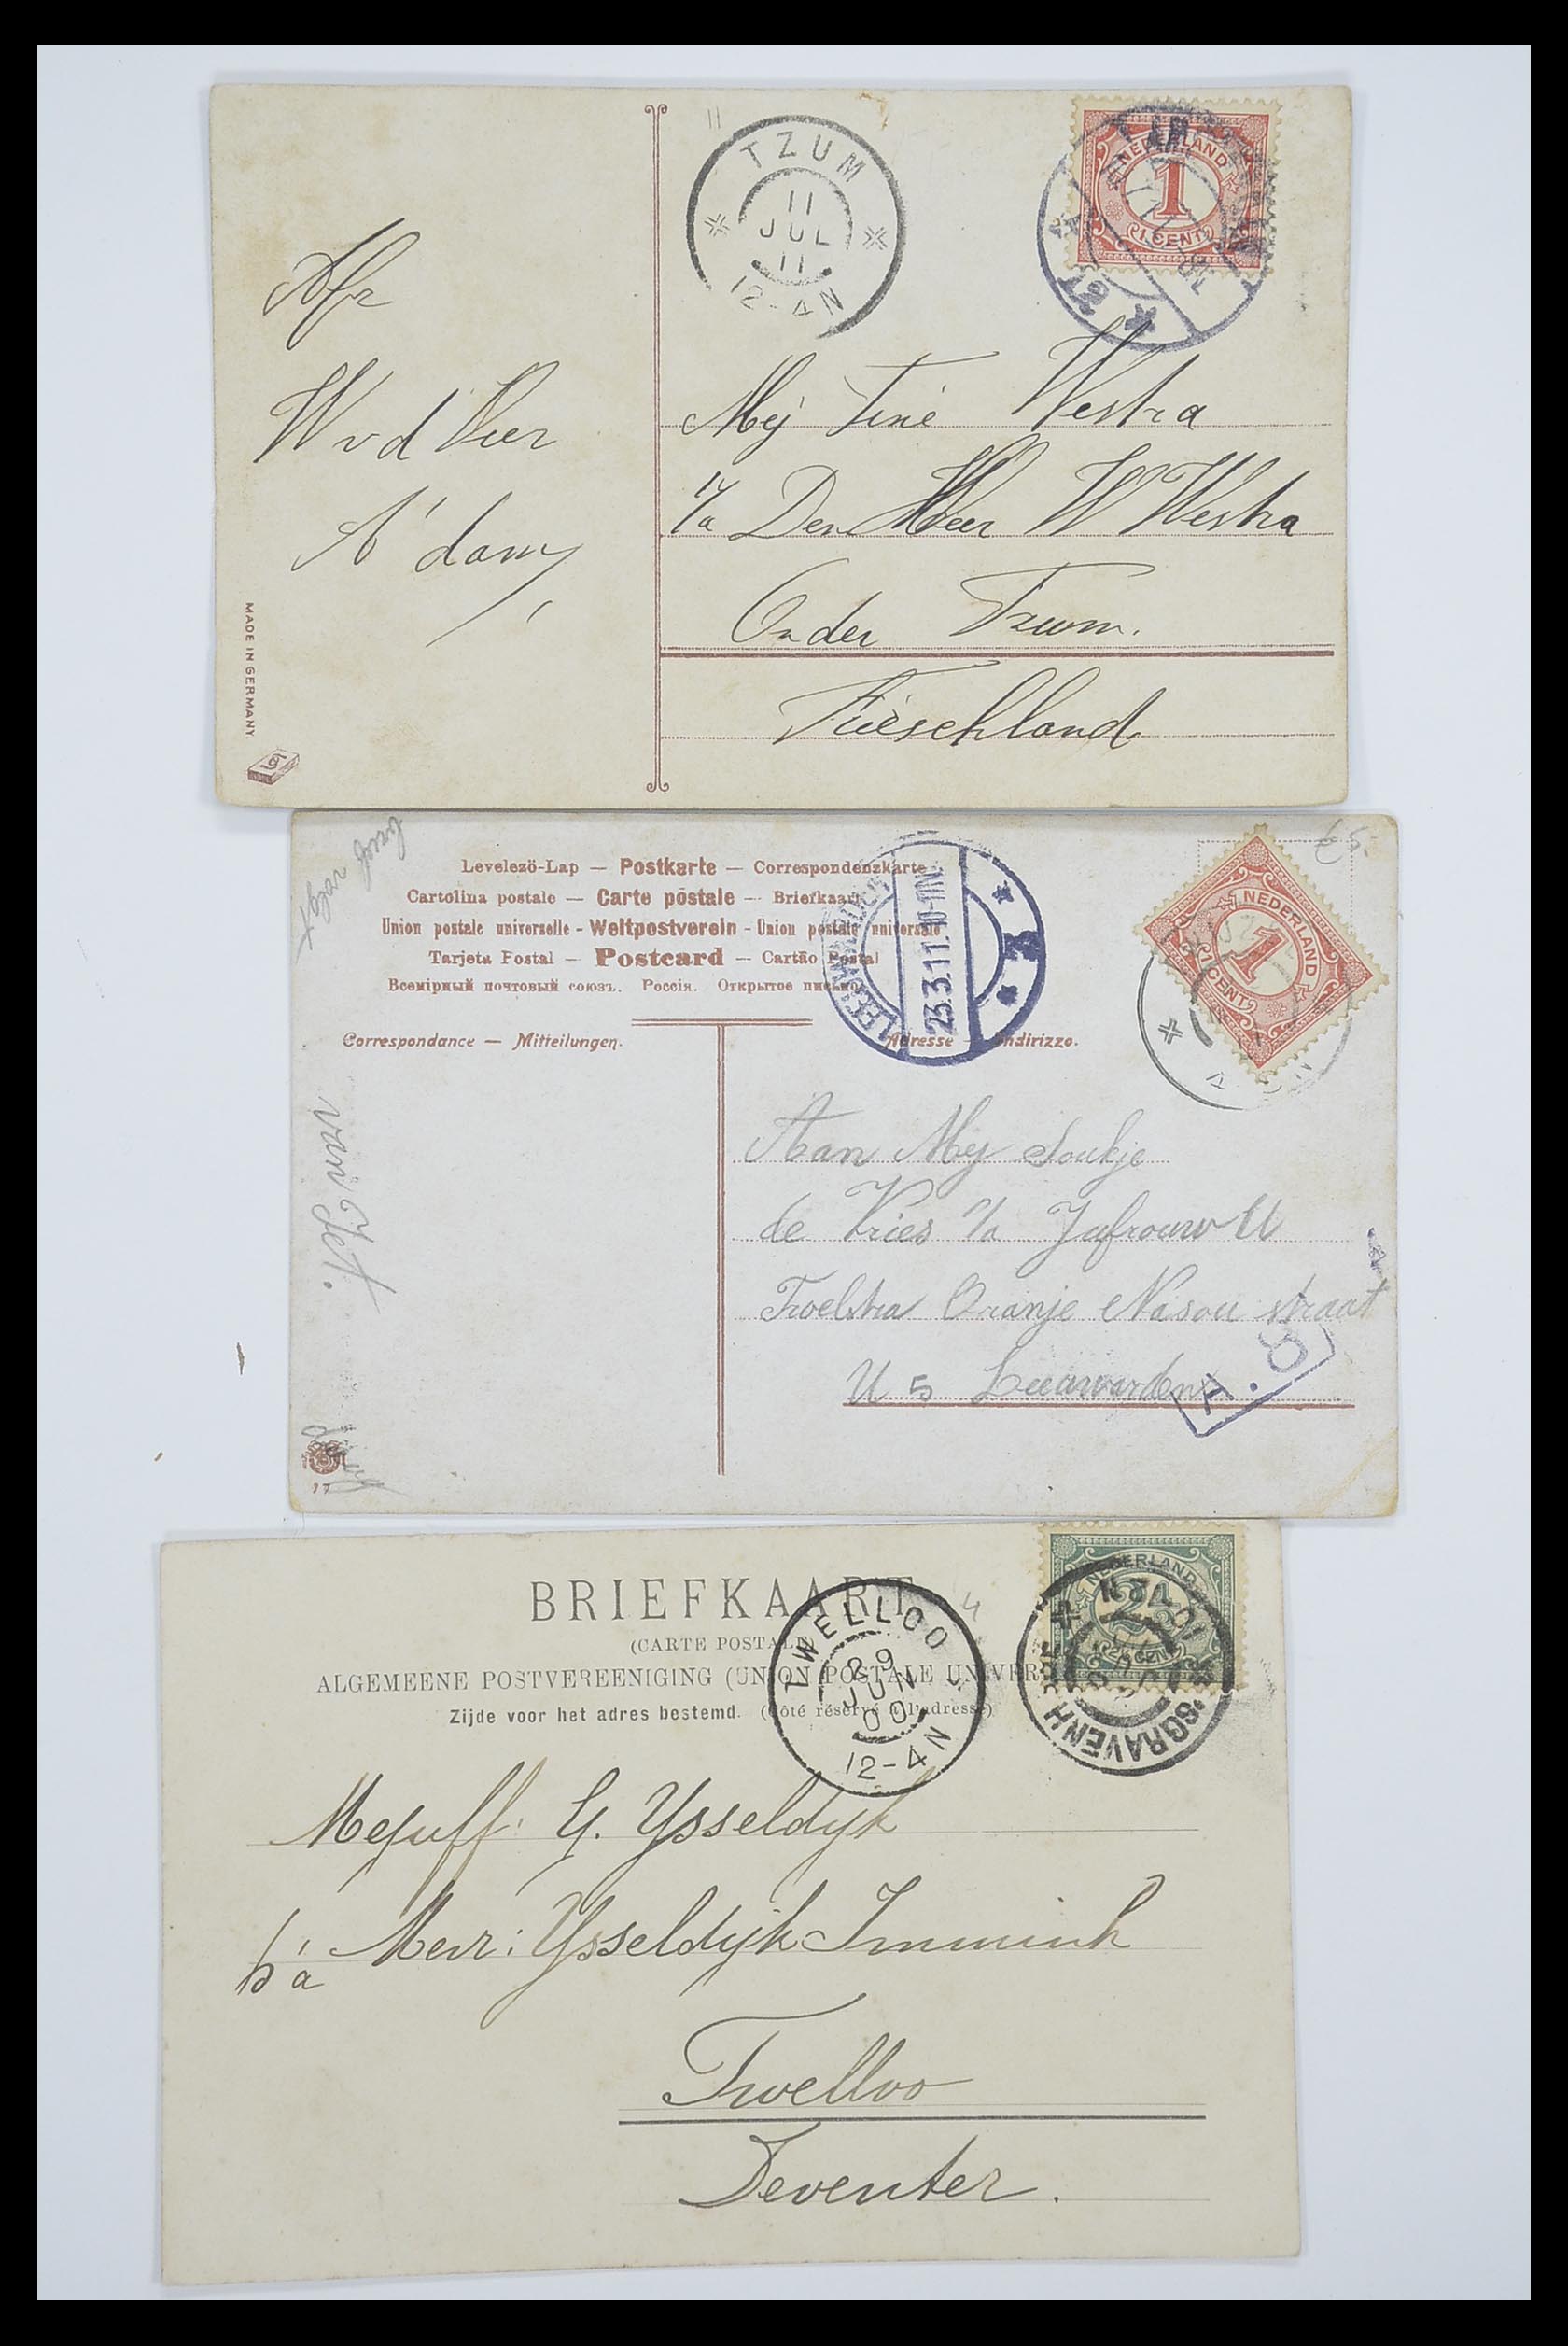 TZUM
11
JUL
11
12-4N
NEDERLAND
1
1 CENT
Afz
W v d Veer
A'dam
Mej Tine Westra
p/a Den Heer W Westra
Onder Tzum.
Frieschland
MADE IN GERMANY.
Levelezö-Lap — Postkarte — Correspondenzkarte
Cartolina postale — Carte postale — Briefkaart
Union postale universelle - Weltpostverein - Union postale universale
Tarjeta Postal — Postcard — Cartão Postal
Всемірный почтовый союзъ. Россія. Открытое письмо
Correspondance — Mitteilungen.
Adresse — Indirizzo.
23.3.11.10-11N
3
NEDERLAND
1
1 CENT
van Jet.
Aan Mej Soukje
de Vries p/a Jufrouw U
Troelstra Oranje Nasou straat
U 5 Leeuwarden
A.9
17
BRIEFKAART
(CARTE POSTALE)
ALGEMEENE POSTVEREENIGING (UNION POSTALE UNIVER
Zijde voor het adres bestemd. (Côté réservé à l'adresse)
TWELLOO
29
JUN
00
12-4N
NEDERLAND
2½
2½ CENT
SGRAVENH
Mejuff: G. Ysseldijk
p/a Mevr: Ysseldijk-Immink
Twelloo
Deventer.